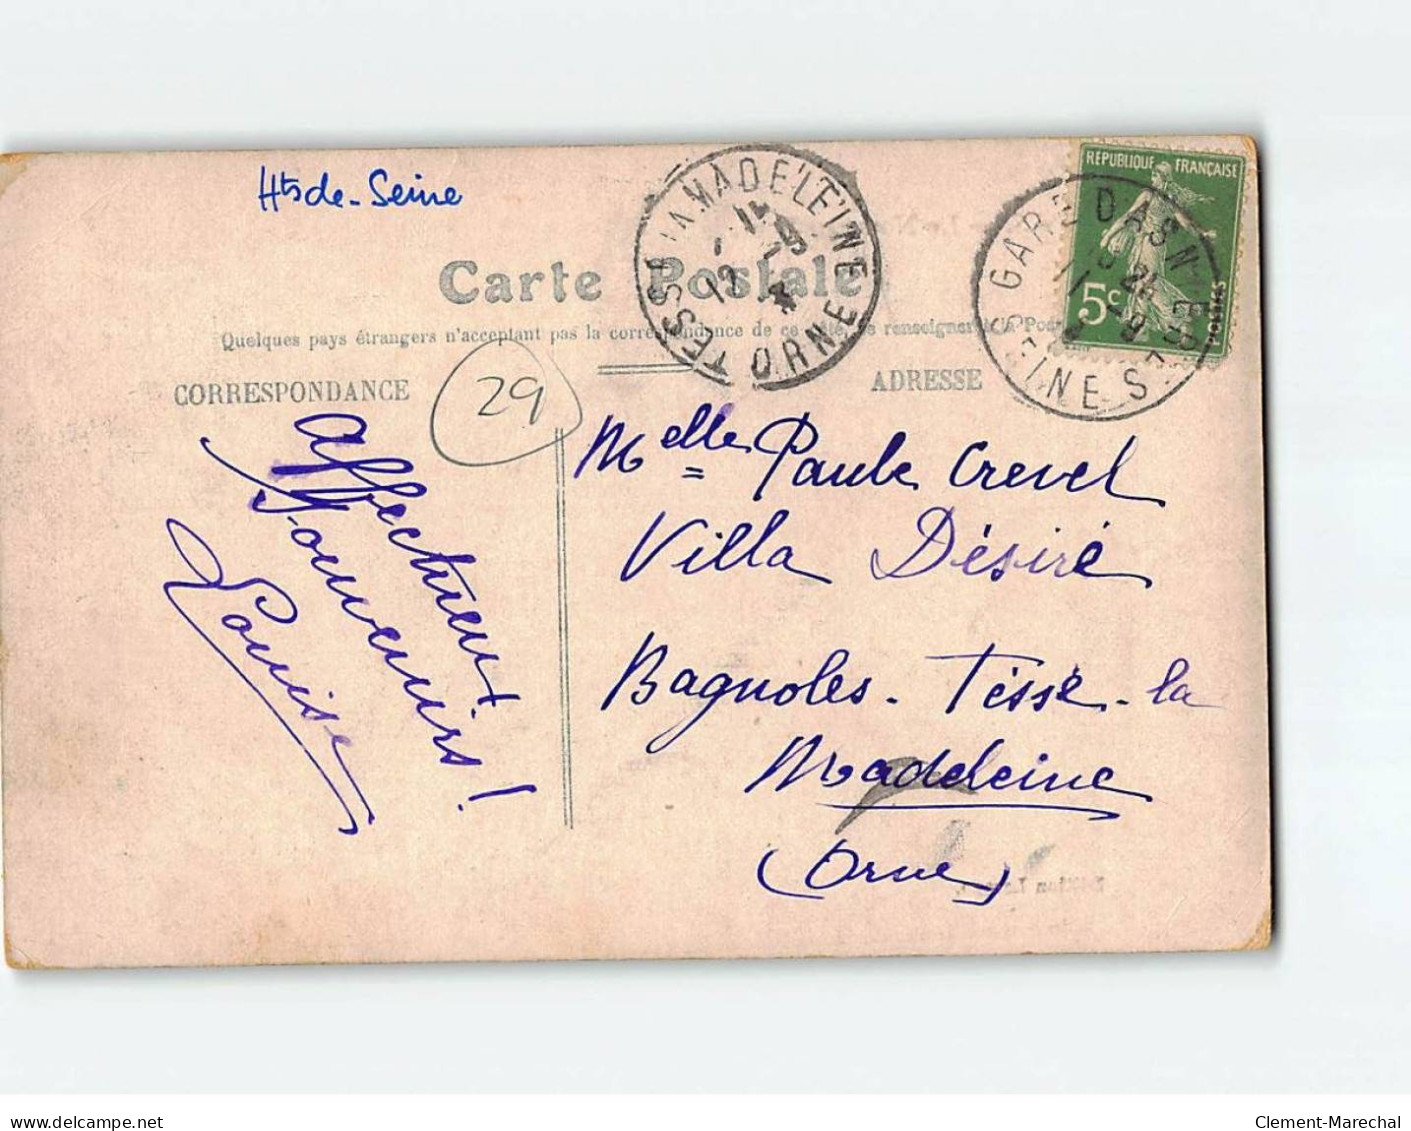 Hts de-Seine
TESSÉ LA MADELEINE
ORNE
GARE D'ASNIÈRES
SEINE
RÉPUBLIQUE FRANÇAISE
5c
POSTES
Carte Postale
Quelques pays étrangers n'acceptant pas la correspondance de ce côté, se renseigner à la Poste
CORRESPONDANCE
29
ADRESSE
Affectueux
Souvenirs !
Louise
Melle Paule Crevel
Villa Désiré
Bagnoles - Tessé - la
Madeleine
(Orne)
Clement-Marechal
www.delcampe.net